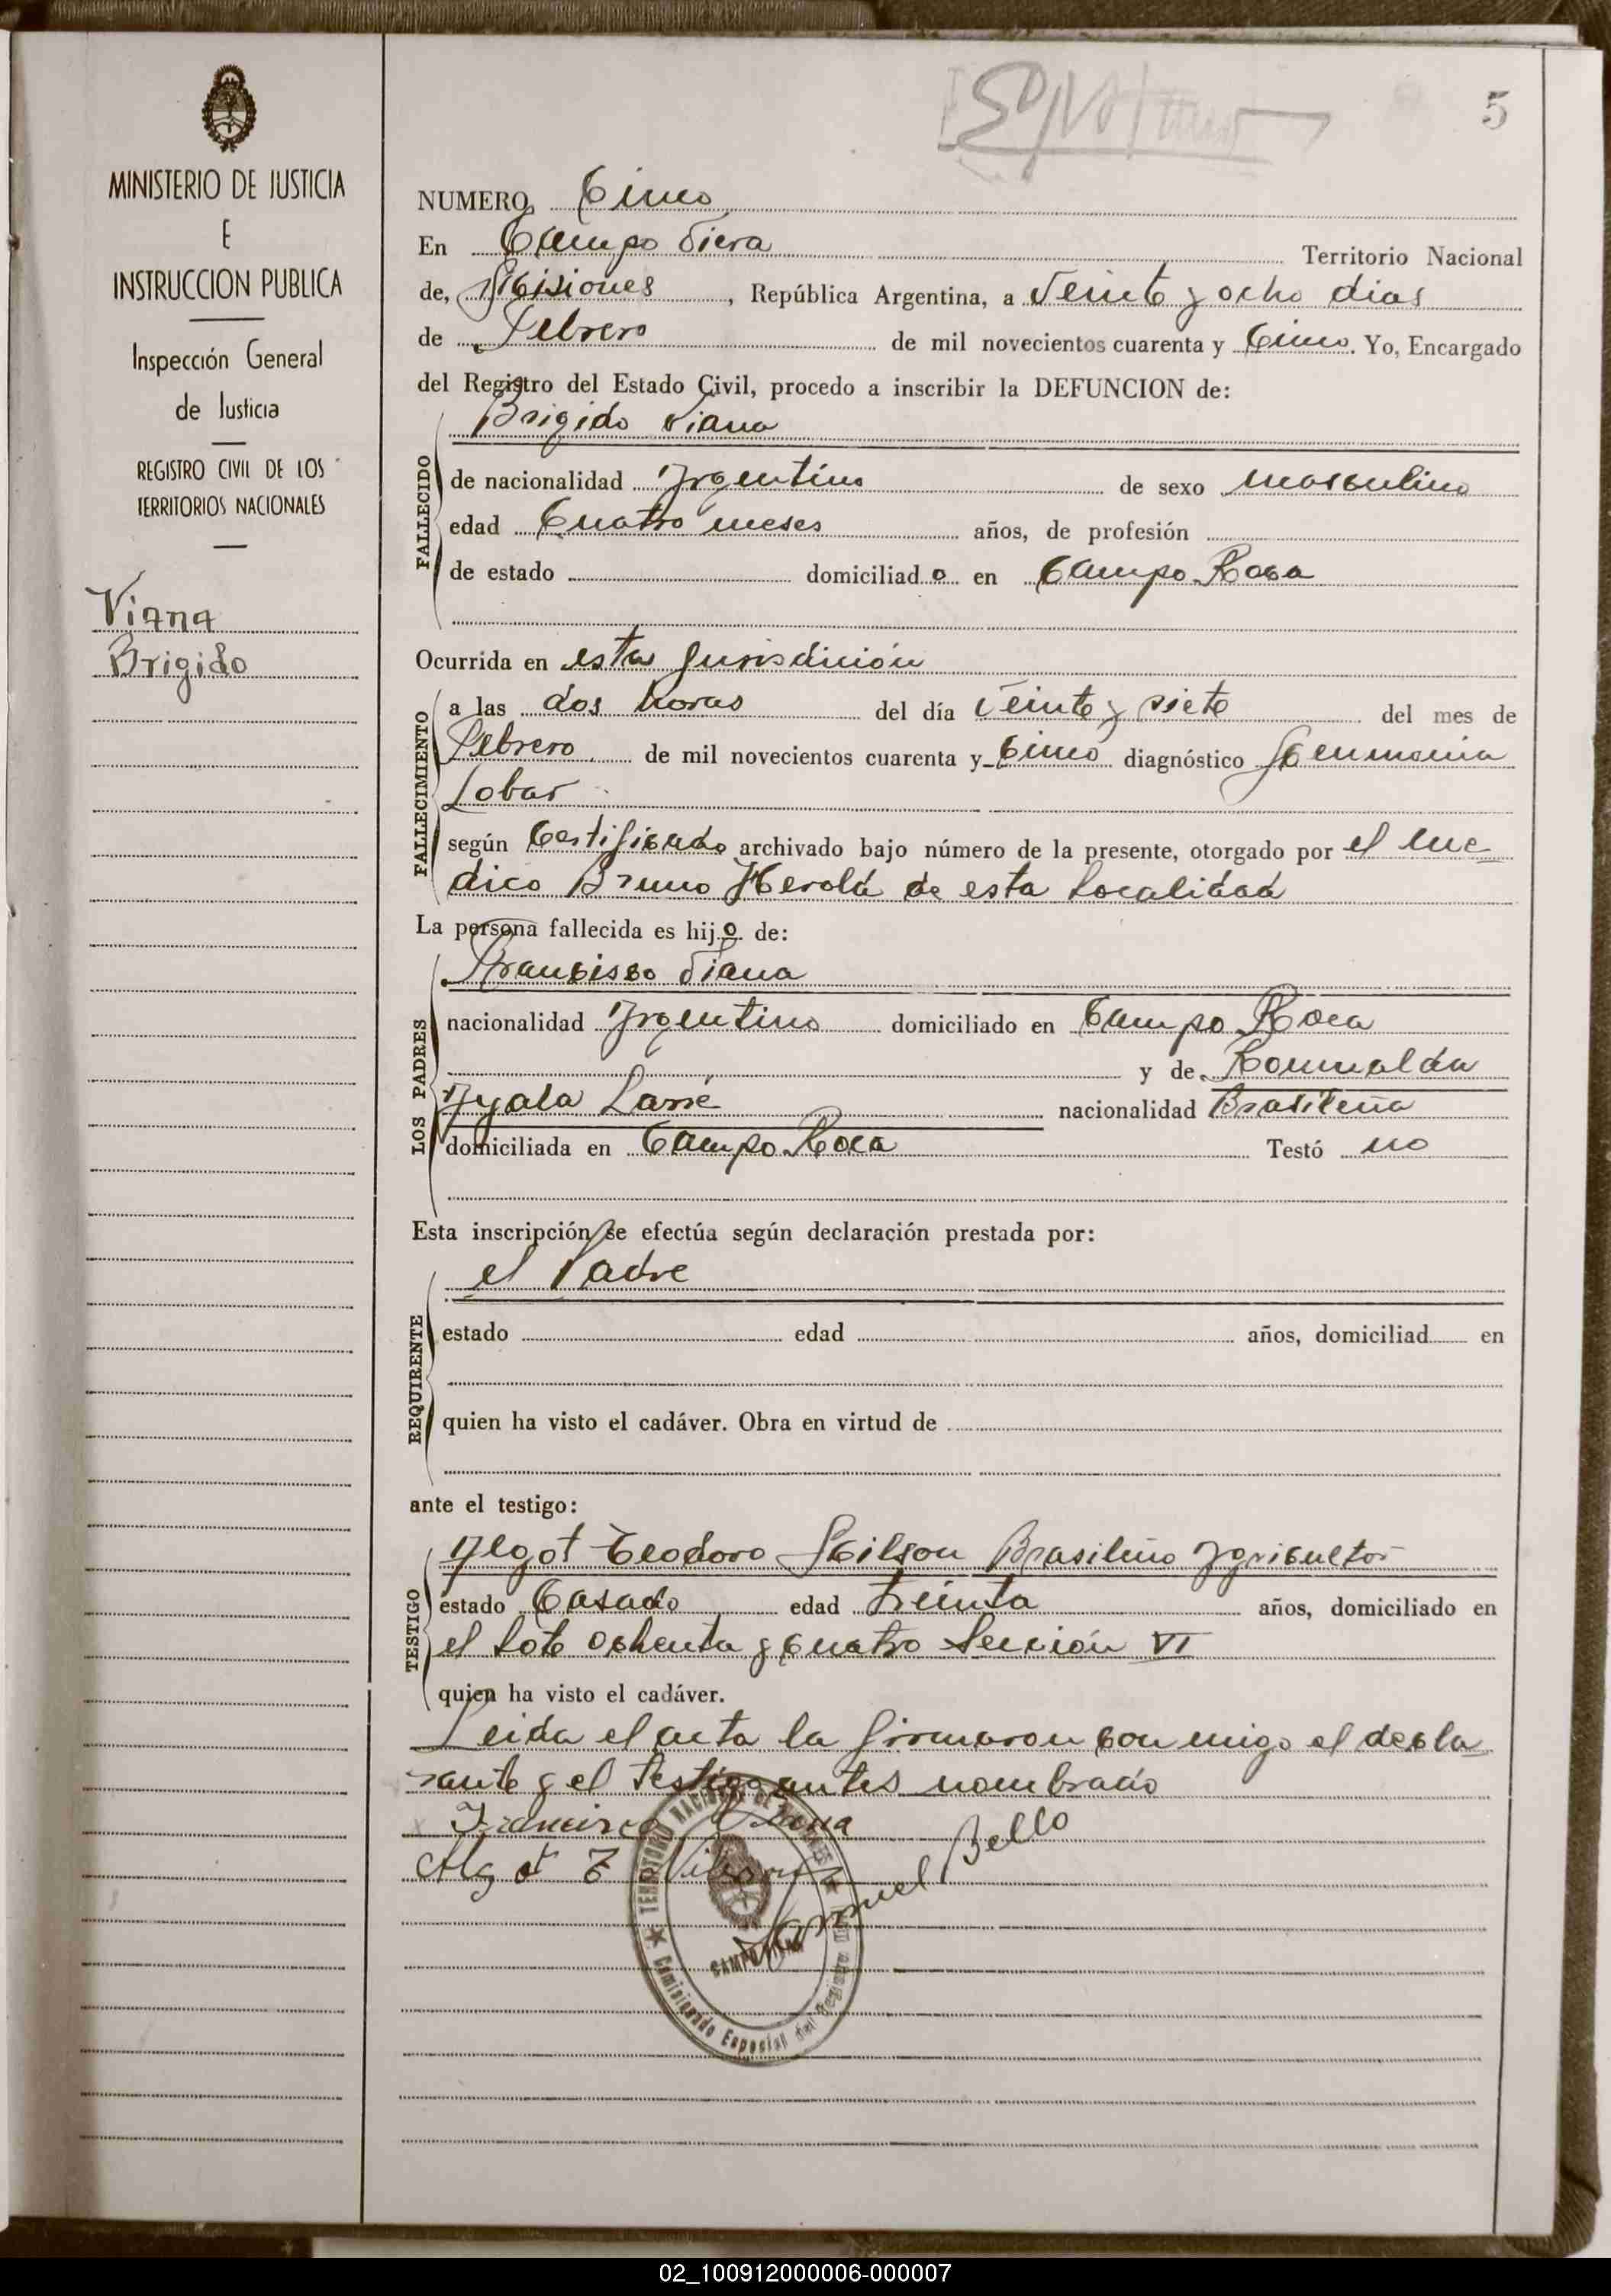 5
MINISTERIO DE JUSTICIA
E
INSTRUCCION PUBLICA
Inspección General
de Justicia
REGISTRO CIVIL DE LOS
TERRITORIOS NACIONALES
Viana
Brigido
NUMERO Cinco
En Campo Viera Territorio Nacional
de, Misiones, República Argentina, a Veinte y ocho dias
de Febrero de mil novecientos cuarenta y Cinco. Yo, Encargado
del Registro del Estado Civil, procedo a inscribir la DEFUNCION de:
Brigido Viana
FALLECIDO
de nacionalidad Argentino de sexo masculino
edad Cuatro meses años, de profesión
de estado domiciliado en Campo Roca
Ocurrida en esta Jurisdición
FALLECIMIENTO
a las dos horas del día Veinte y siete del mes de
Febrero de mil novecientos cuarenta y Cinco diagnóstico Neumonia
Lobar
según Certificado archivado bajo número de la presente, otorgado por el me
dico Bruno Herold de esta Localidad
La persona fallecida es hijo de:
LOS PADRES
Francisco Viana
nacionalidad Argentino domiciliado en Campo Roca
y de Romualda
Ayala nacionalidad Brasileña
domiciliada en Campo Roca Testó no
Esta inscripción se efectúa según declaración prestada por:
REQUIRENTE
el Padre
estado edad años, domiciliad en
quien ha visto el cadáver. Obra en virtud de
ante el testigo:
TESTIGO
Algot Teodoro Nilson Brasileño Agricultor
estado Casado edad treinta años, domiciliado en
el Lote ochenta y cuatro Sección VI
quien ha visto el cadáver.
Leida el acta la firmaron con migo el decla
rante y el testigo antes nombrado
Francisco Viana
Algot T Nilson
Manuel Bello
TERRITORIO NACIONAL DE MISIONES
CAMPO VIERA
Comisionado Especial del Registro Civil
02_100912000006-000007